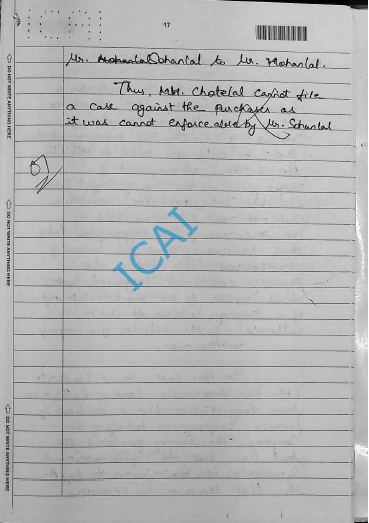 17
Mr. Mohanlal Sohanlal to Mr. Mohanlal.
Thus, Mr. Chotelal cannot file
a case against the purchases as
it was cannot enforce by Mr. Sohanlal
ICAI
DO NOT WRITE ANYTHING HERE
DO NOT WRITE ANYTHING HERE
DO NOT WRITE ANYTHING HERE